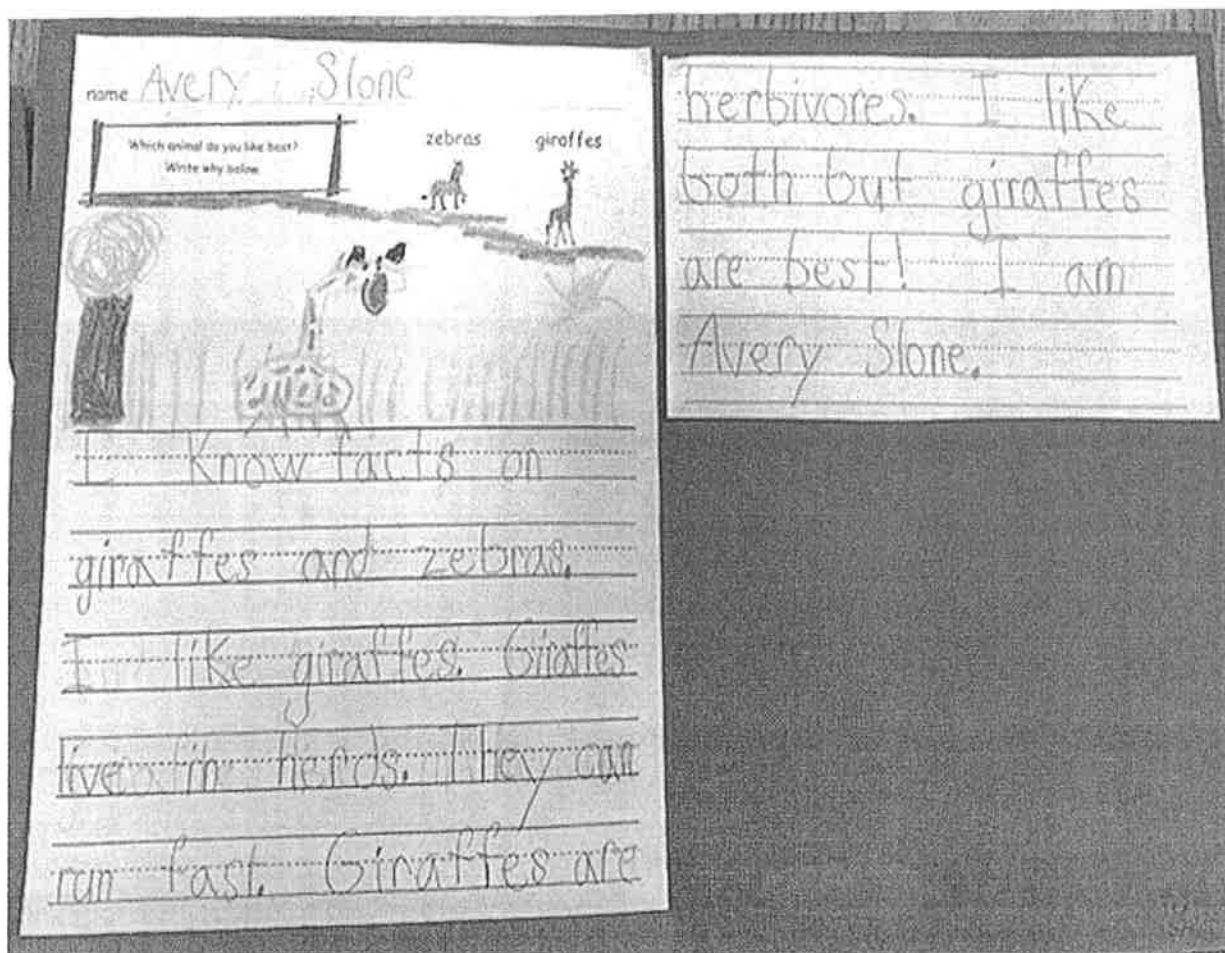 name Avery Slone
Which animal do you like best?
Write why below
zebras
giraffes
I know facts on
giraffes and zebras.
I like giraffes. Giraffes
live in herds. They can
run fast. Giraffes are
herbivores. I like
both but giraffes
are best! I am
Avery Slone.